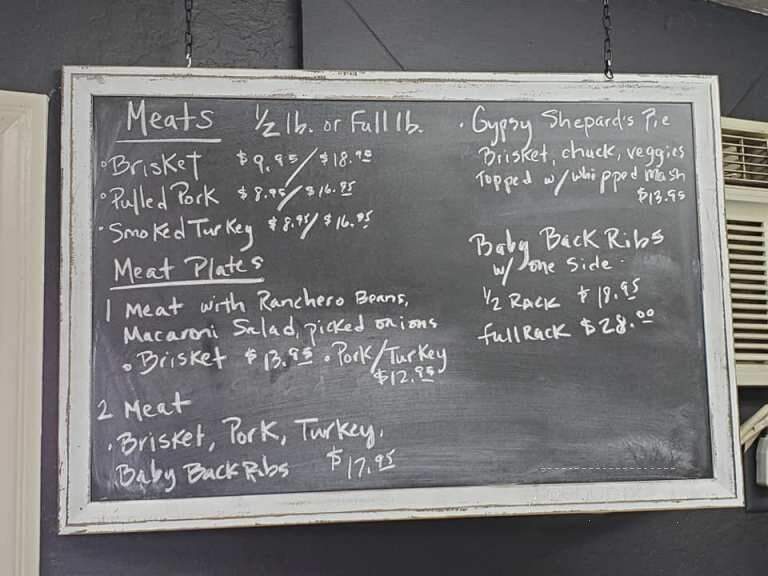 Meats 1/2 lb. or Full lb.
• Brisket $9.95/$18.95
• Pulled Pork $8.95/$16.95
• Smoked Turkey $8.95/$16.95
Meat Plates
1 Meat with Ranchero Beans,
Macaroni Salad, picked onions
• Brisket $13.95 • Pork/Turkey
$12.95
2 Meat
• Brisket, Pork, Turkey,
Baby Back Ribs $17.95
• Gypsy Shepard's Pie
Brisket, chuck, veggies
Topped w/ whipped mash
$13.95
Baby Back Ribs
w/ one side
1/2 Rack $18.95
full Rack $28.00